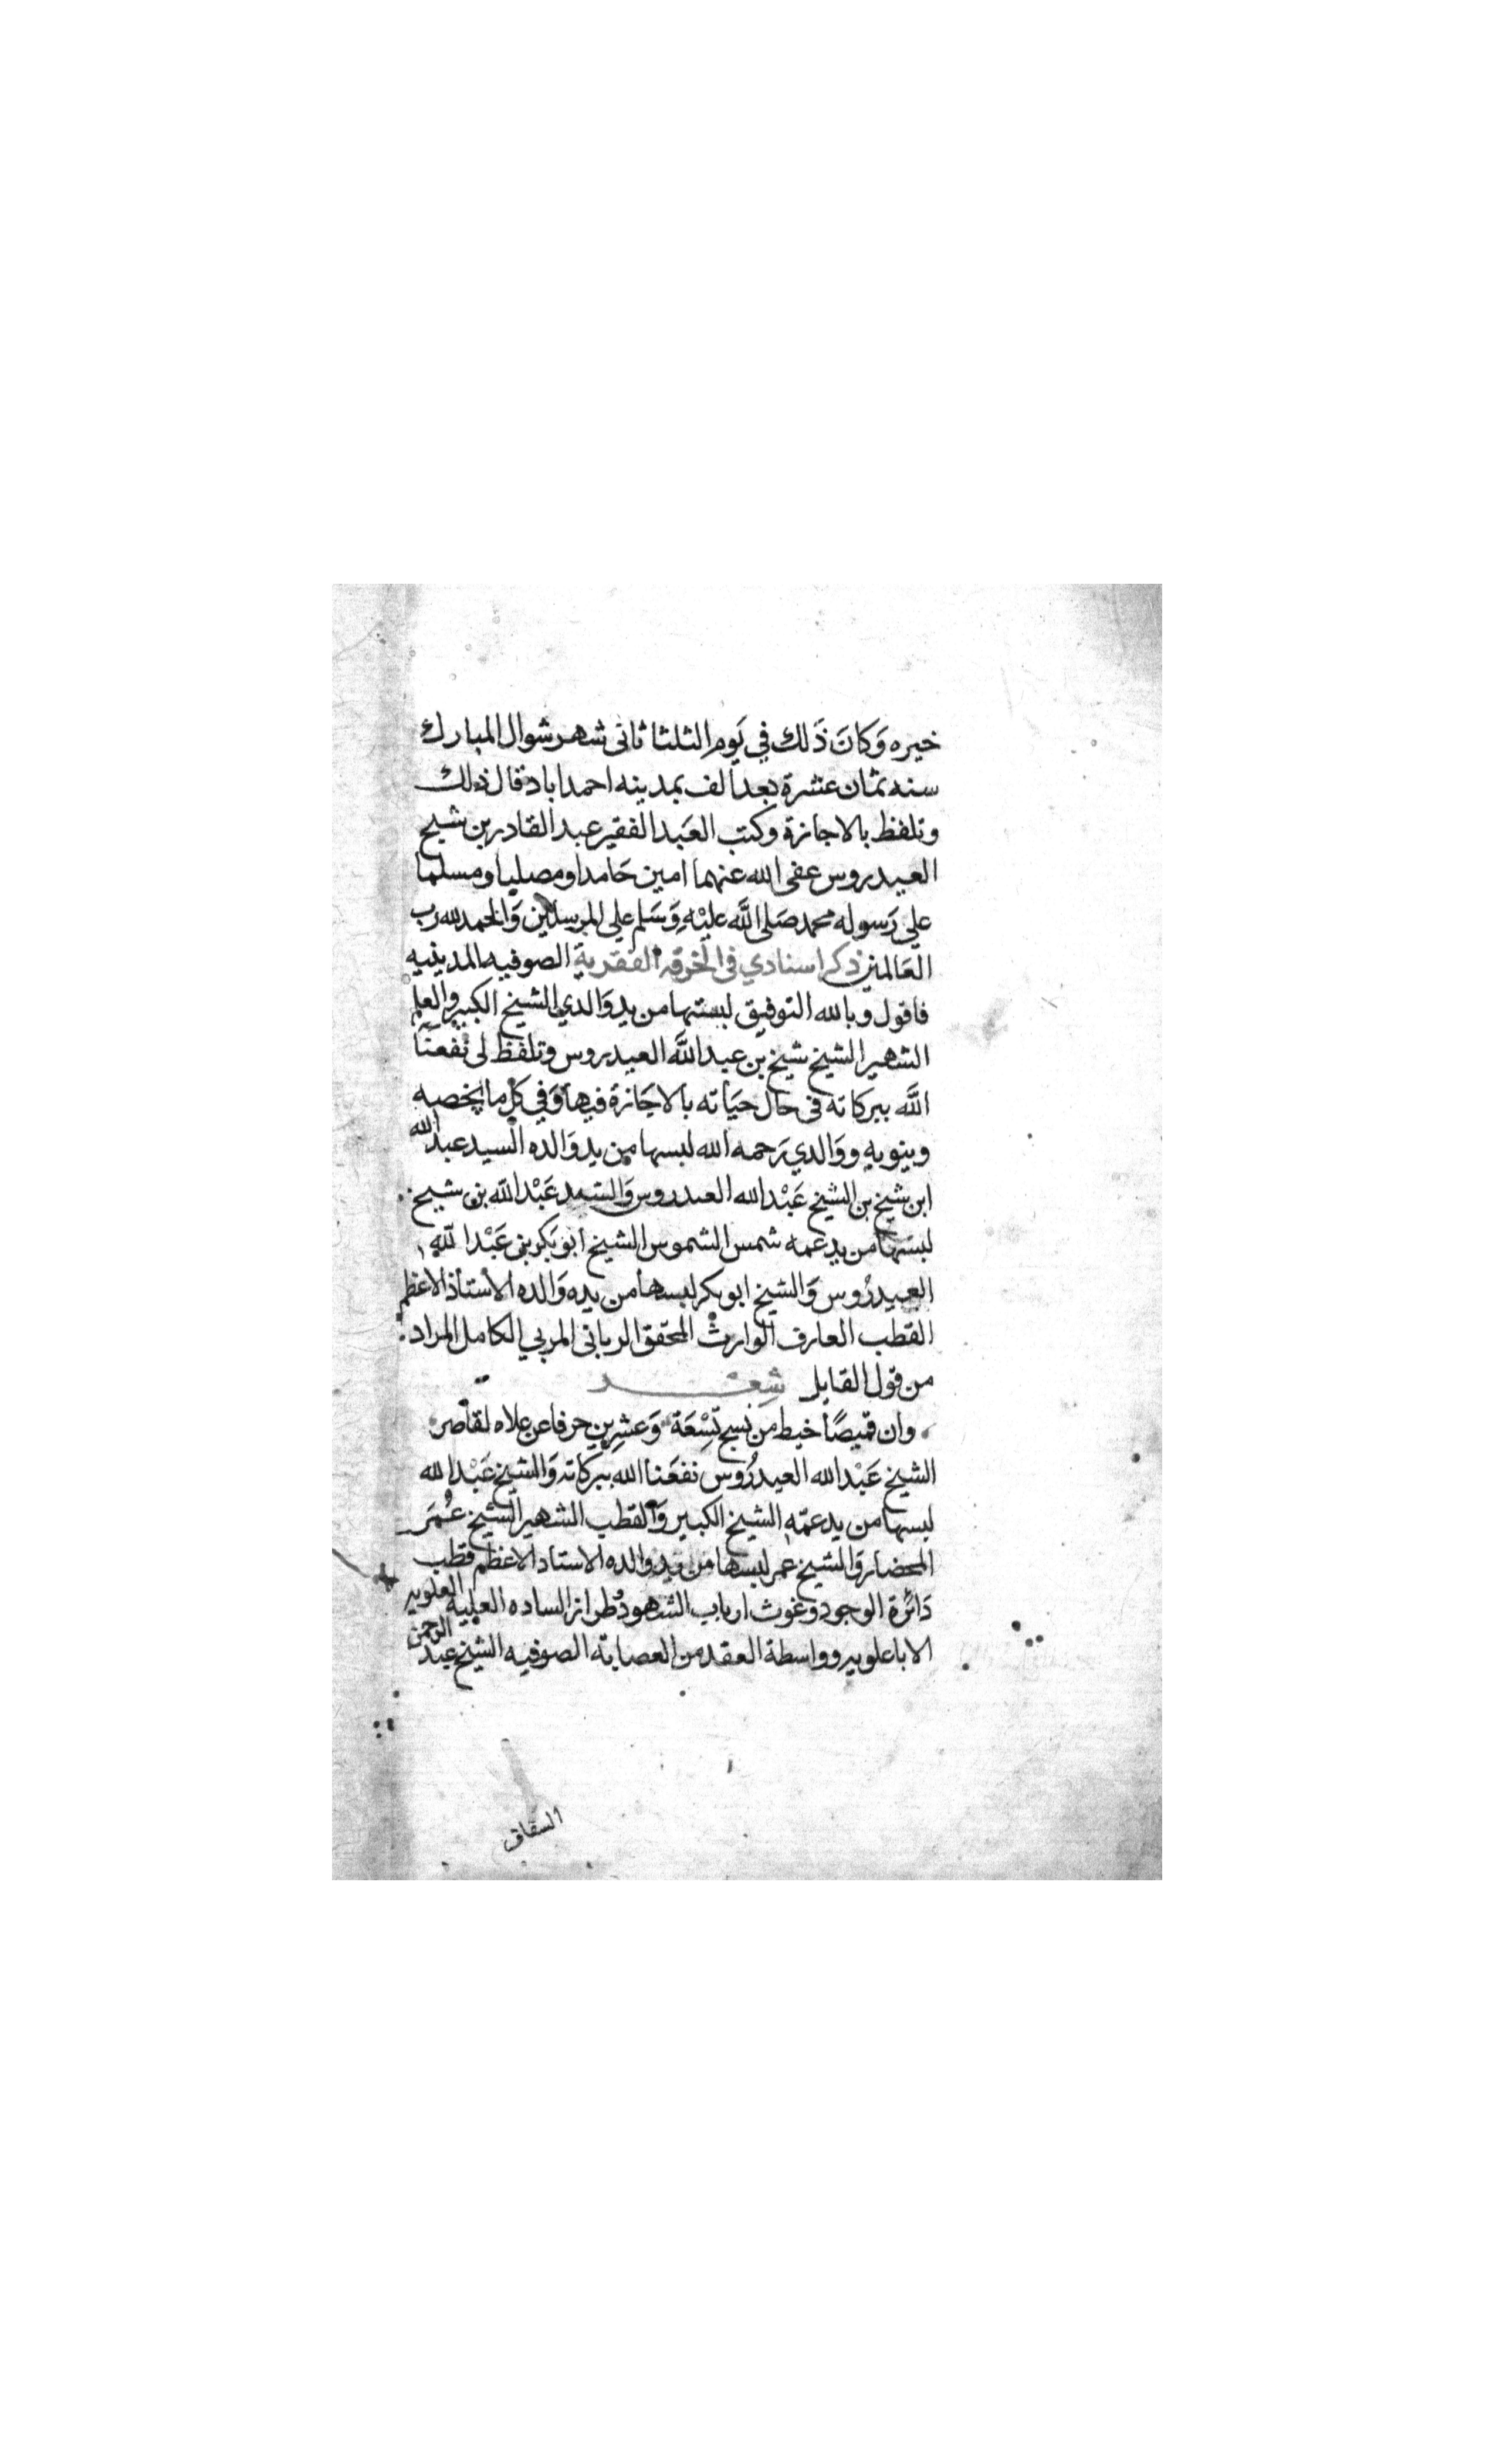 خيره وَكانَ ذَلك في يَوم الثلثا ثانى شهر شوال المبارك
سنه ثمان عشرة بعد الف بمدينه احمداباد قال ذلك
وتلفظ بالاجازة وكتب العَبد الفقير عبد القادر بن شيخ
العيدروس عفى الله عنهما امين حَامدا ومصليا ومسلما
على رَسوله محمد صَلى اللَّه عليْهِ وَسَلم على المرسلين وَالحمد لله رب
العَالمين ذكر اسنادي فى الخرقه الفقرية الصوفيه المدينيه
فاقول وبالله التوفيق لبستها من يد وَالدي الشيخ الكبير والعلم
الشهير الشيخ شيخ بن عبد اللَّه العيدروس وتلفظ لى نفعنَا
اللَّه ببركاته فى حال حيَاته بالاجَازة فيها وَفي كل ما يخصه
وينويه ووَالدي رَحمه الله لبسها من يد وَالده السيد عبد الله
ابن شيخ بن الشيخ عَبْد الله العيدروس وَالسَيد عَبْد اللّه بن شيخ
لبسَها من يد عمه شمس الشموس الشيخ ابو بَكر بن عَبْد اللّه
العيدرُوس وَالشيخ ابو بكر لبسها من يده وَالده الاستاذ الاعظم
القطب العارف الوارث المحقق الربانى المربي الكامل المراد
من قول القايل شعْـــر
وان قميصًا خيط من نسج تِسْعَة وَعشرِين حرفا عن علاه لقاصر
الشيخ عَبْد الله العيدرُوس نفعَنا الله ببركاته وَالشيخ عَبْد الله
لبسها من يد عمّه الشيخ الكبير وَالقطب الشهير الشيخ عُمَر
المحضار وَالشيخ عمر لبسها من يد والده الاستاد الاعظم قطب
دَائرة الوجود وغوث ارباب الشهود طراز الساده العليه العلويه
الاباعلويه وواسطة العقد من العصابة الصوفيه الشيخ عبد الرحمن
السقاف